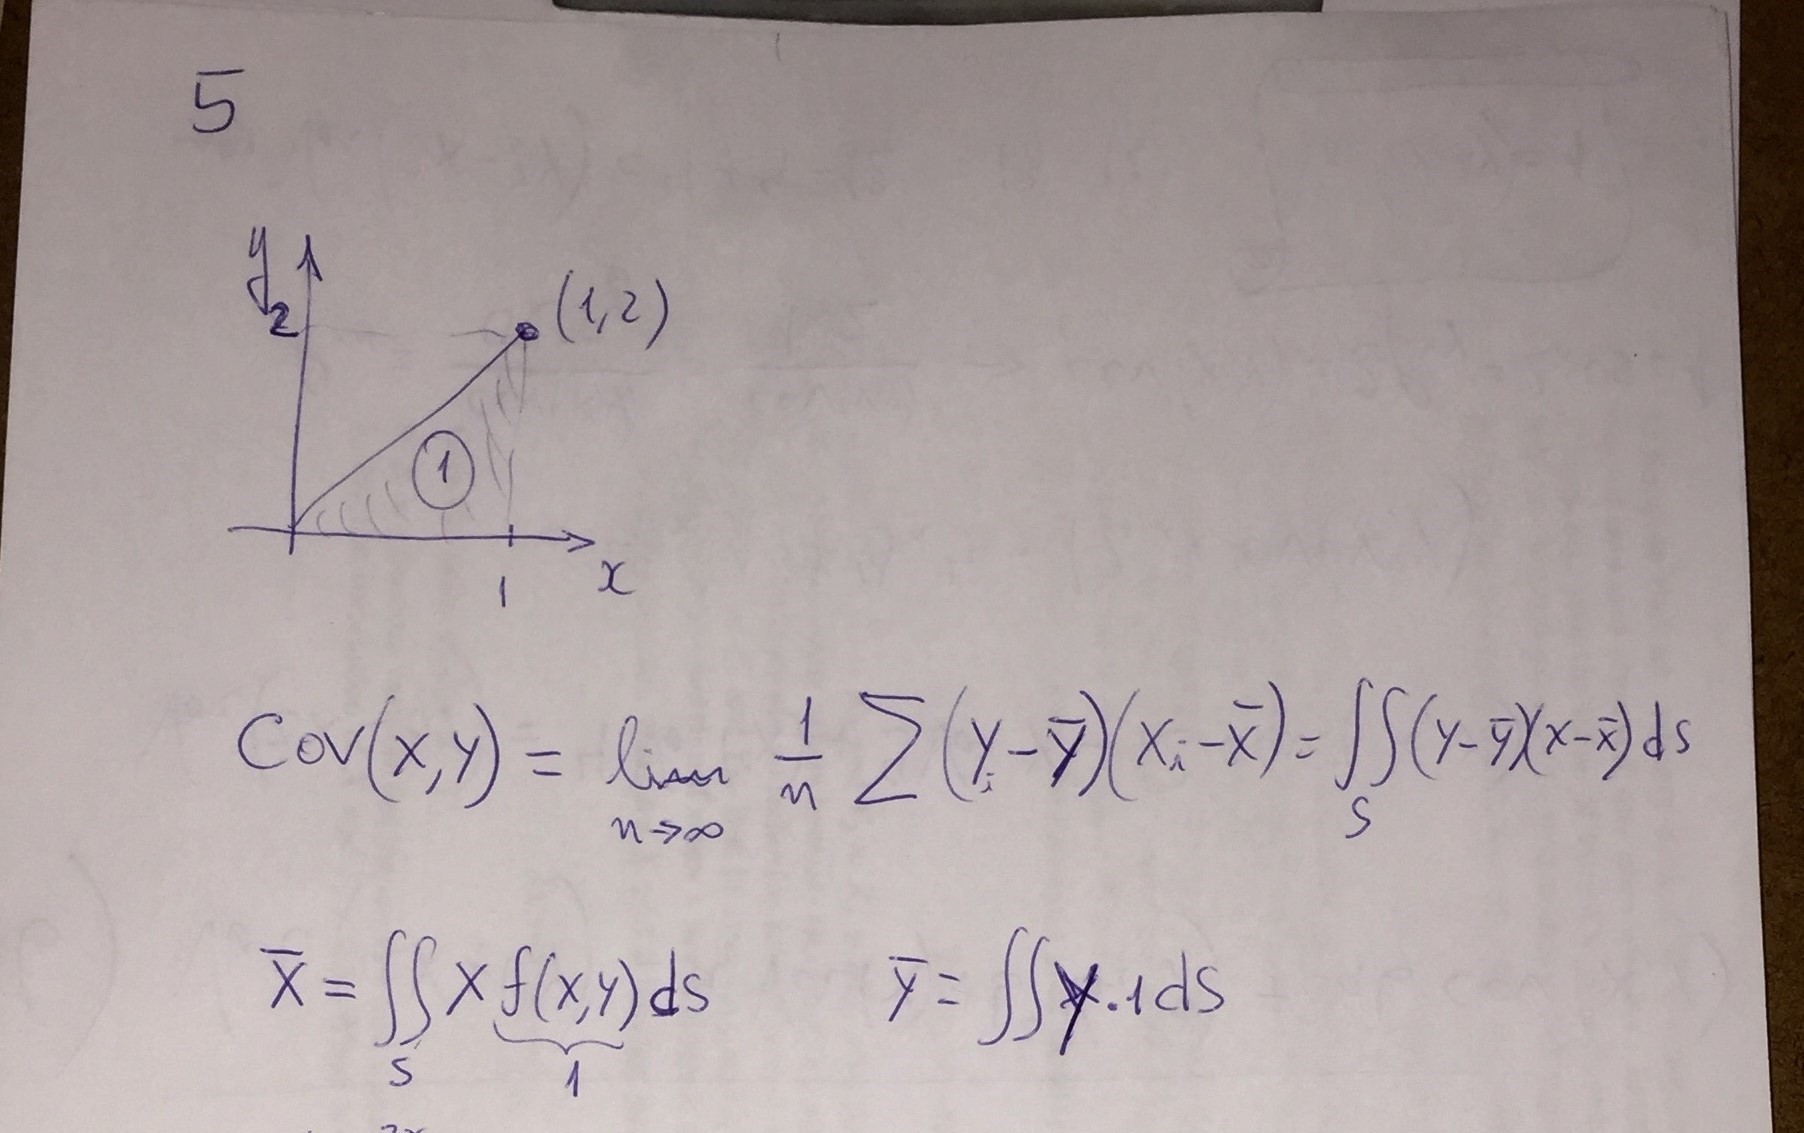 5
y
2
(1,2)
1
1
x
Cov(x,y) = lim n→∞ 1/n ∑(yᵢ-ȳ)(xᵢ-x̄) = ∬S (y-ȳ)(x-x̄)ds
x̄ = ∬S x f(x,y) ds ȳ = ∬ y.1ds
1